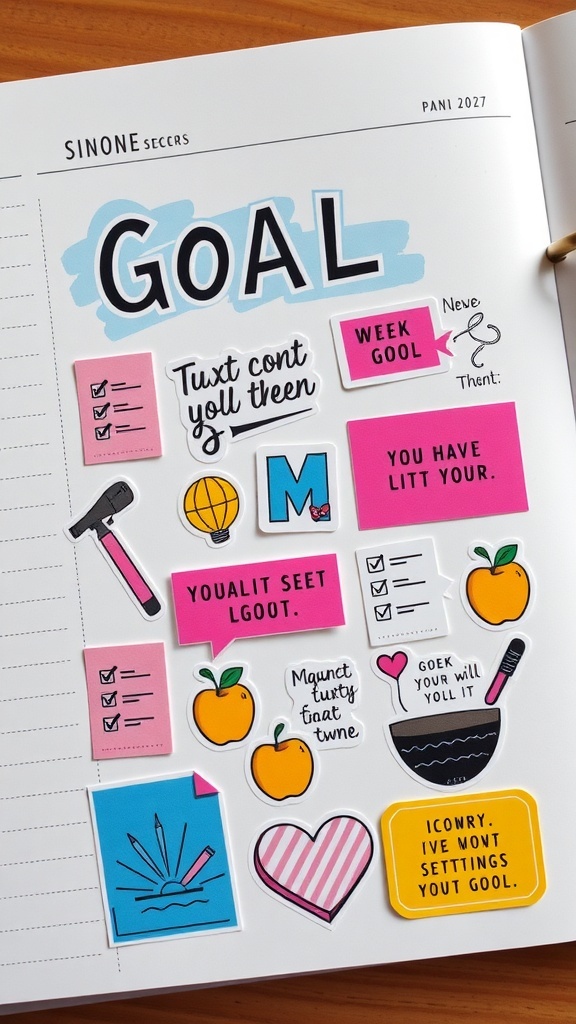 SINONE SECCRS
PANI 2027
GOAL
WEEK
GOOL
Neve
Thent:
Tuxt cont
yoll theen
YOU HAVE
LITT YOUR.
M
YOUALIT SEET
LGOOT.
GOEK
YOUR will
YOLL IT
Maunct
tuxty
finat
twne
ICONRY.
IVE MOVT
SETTTINGS
YOUT GOOL.